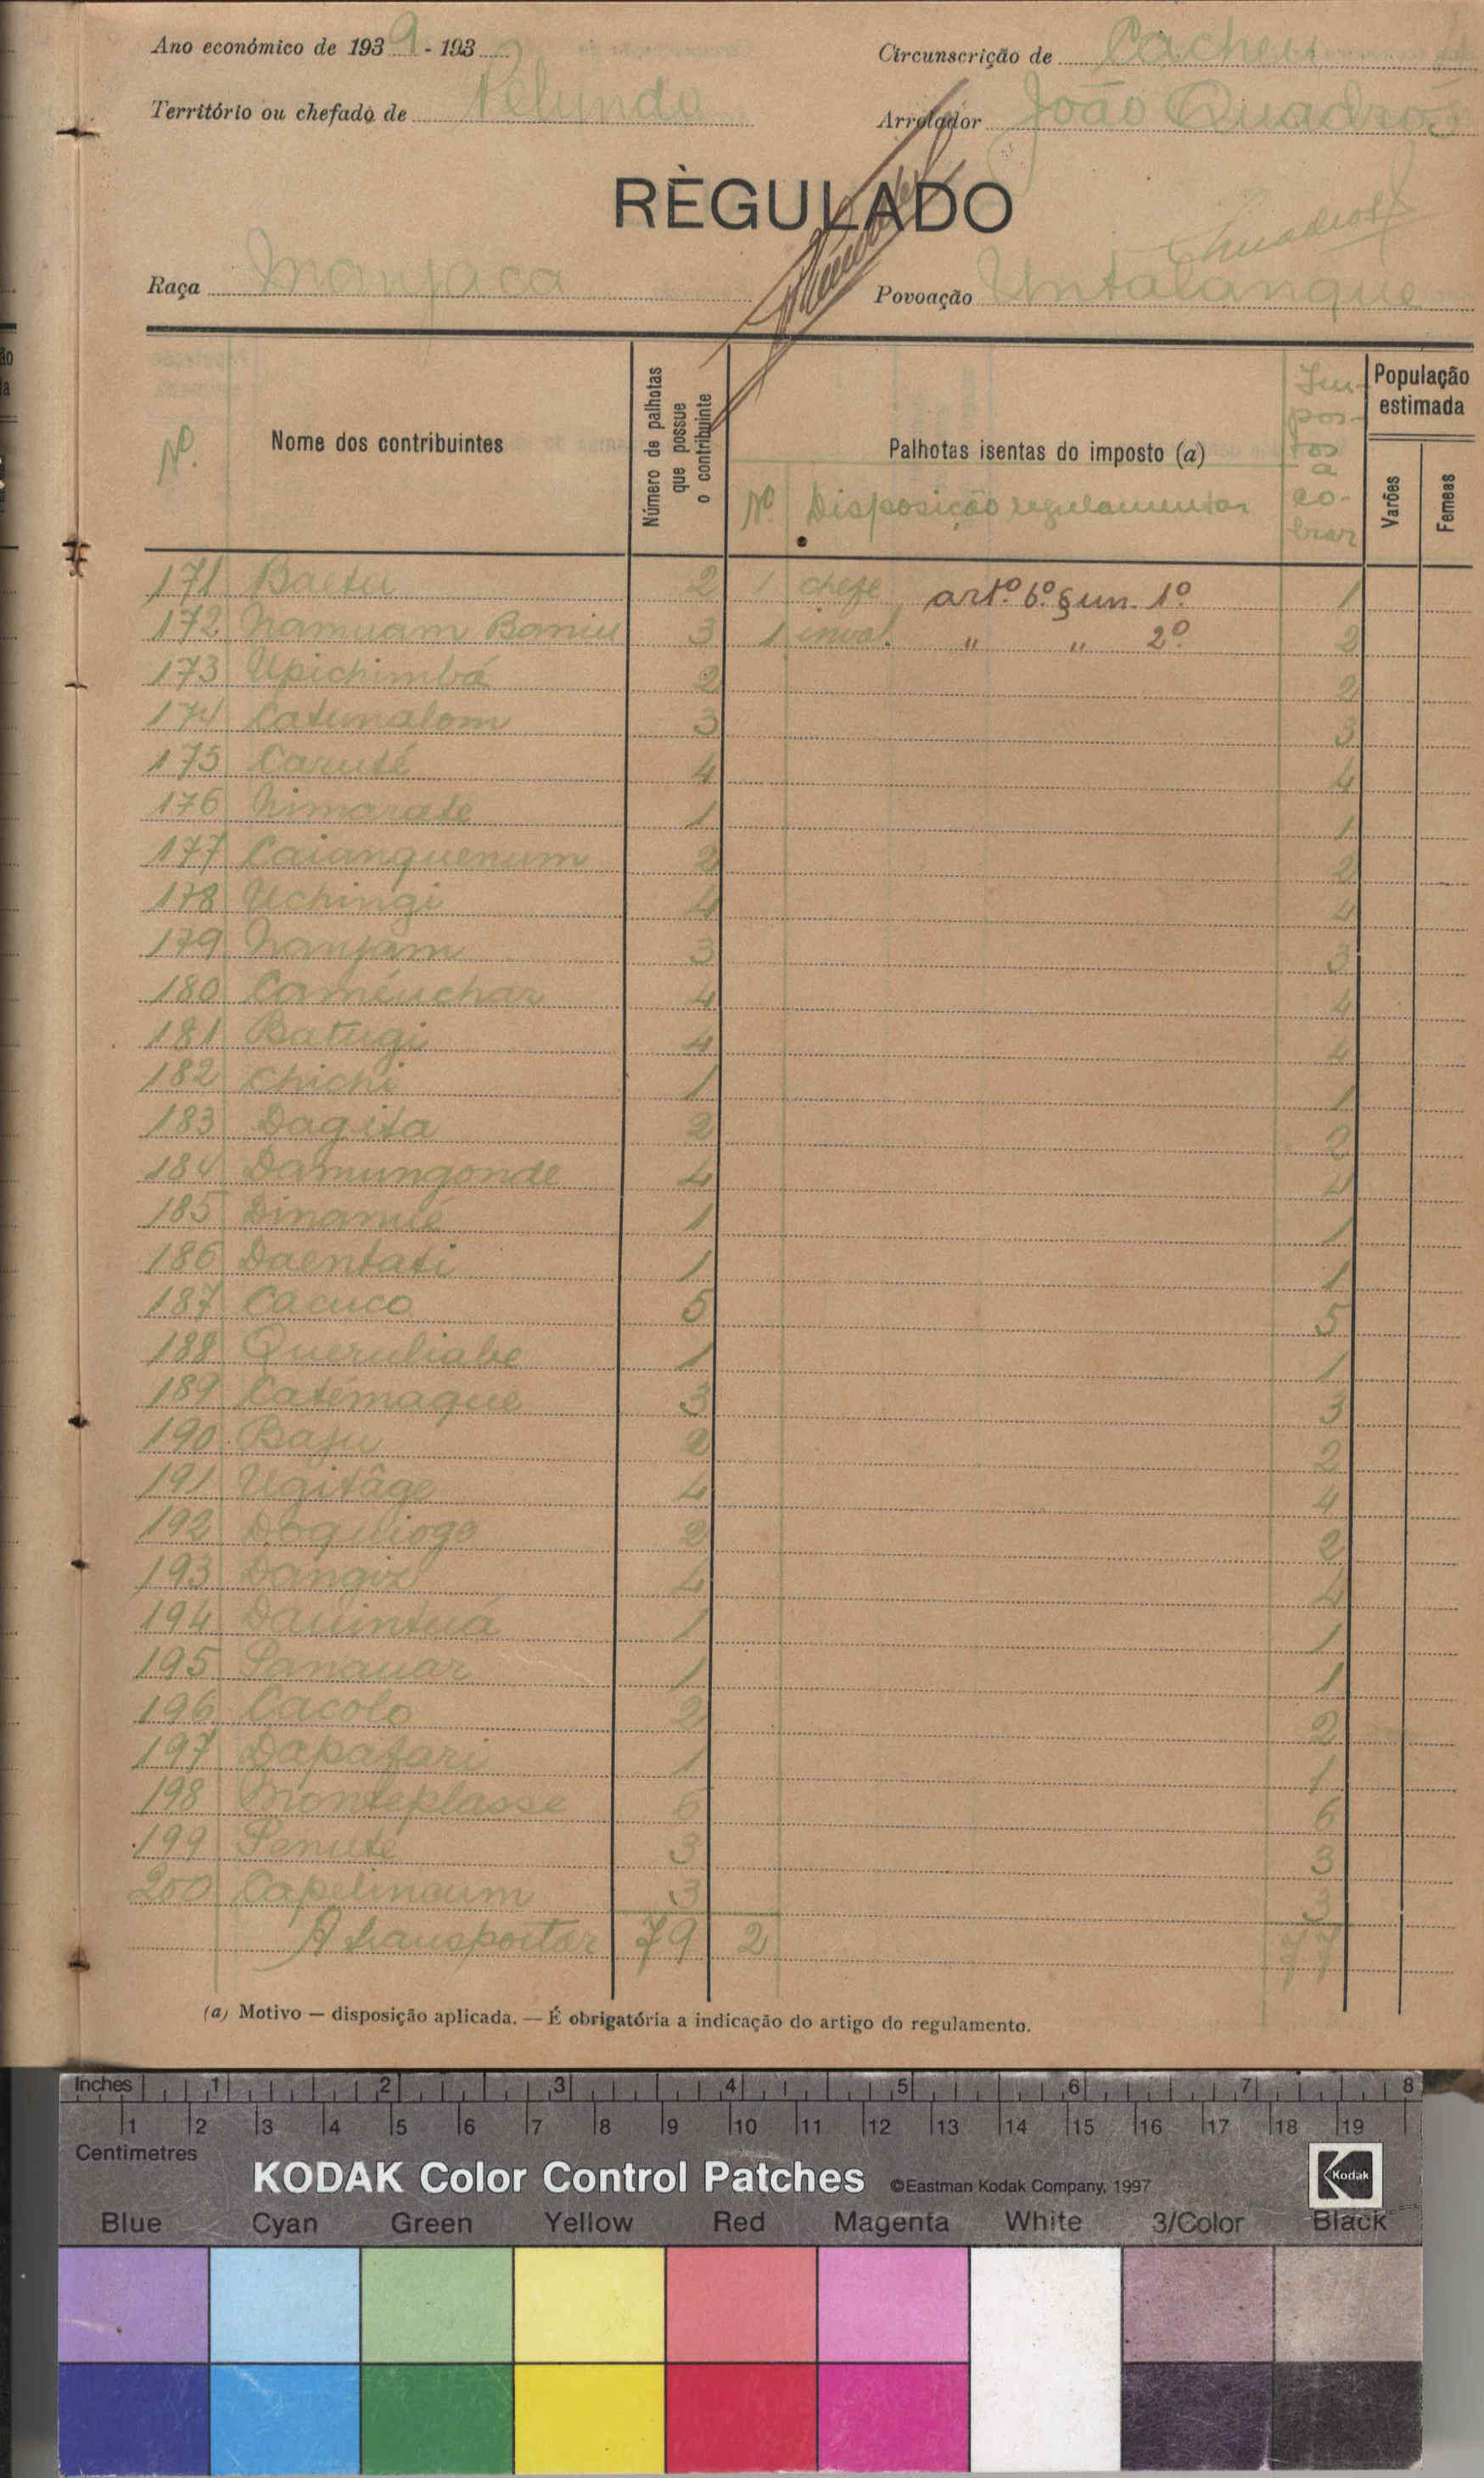 Ano económico de 1939 - 193
Circunscrição de Cacheu
Território ou chefado de Pelundo
Arrolador João Quadros
RÈGULADO
Quadros
Raça Manjaca
Povoação Untalanque
Nº. Nome dos contribuintes
Número de palhotas que possue o contribuinte
Palhotas isentas do imposto (a)
Nº Disposição regulamentar
Impostos a cobrar
População estimada
Varões Femeas
171 Baetu 2 1 chefe artº. 6º. § un. 1º 1
172 Namuam Baniu 3 1 inval. " " 2º 2
173 Upichimbá 2 2
174 Catumalom 3 3
175 Caruté 4 4
176 Nimarate 1 1
177 Caianquenum 2 2
178 Uchingi 4 4
179 Nanjam 3 3
180 Caméuchar 4 4
181 Batugi 4 4
182 Chichi 1 1
183 Dagita 2 2
184 Damungonde 4 4
185 Dinamté 1 1
186 Daentati 1 1
187 Cacuco 5 5
188 Queruliabe 1 1
189 Catémaque 3 3
190 Baju 2 2
191 Ugitâge 4 4
192 2 2
193 4 4
194 Dauintuá 1 1
195 1 1
196 Cacolo 2 2
197 Dapafari 1 1
198 Monteplasse 6 6
199 3 3
200 Capelinaum 3 3
A transportar 79 2 77
(a) Motivo — disposição aplicada. — É obrigatória a indicação do artigo do regulamento.
Inches 1 2 3 4 5 6 7 8
1 2 3 4 5 6 7 8 9 10 11 12 13 14 15 16 17 18 19
Centimetres
KODAK Color Control Patches ©Eastman Kodak Company, 1997 Kodak
Blue Cyan Green Yellow Red Magenta White 3/Color Black